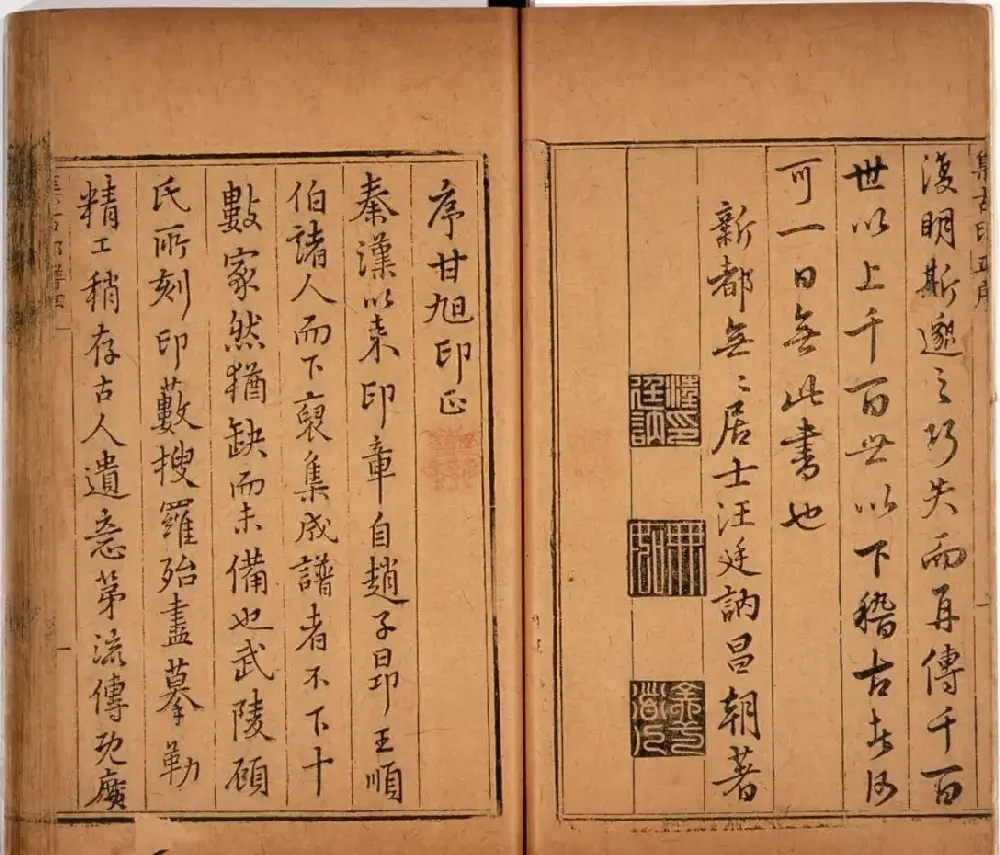 集古印正序
復明斯邈之巧失而再傳千百
世以上千百世以下稽古者何
可一日無此書也
新都無〻居士汪廷訥昌朝著
汪廷訥印
無無
序甘旭印正
秦漢以來印章自趙子昂王順
伯諸人而下裒集成譜者不下十
數家然猶缺而未備也武陵顧
氏所刻印藪搜羅殆盡摹勒
精工稍存古人遺意第流傳既廣
一